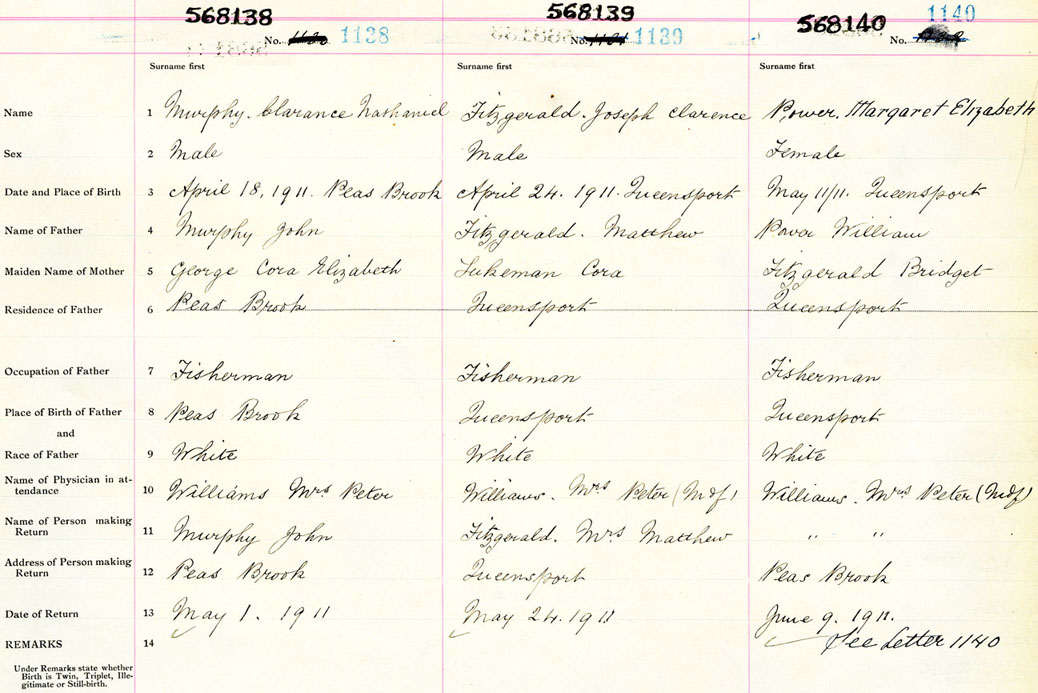 568138 568139 568140 1140
No. 1138 No. 1139 No.
Surname first Surname first Surname first
Name 1 Murphy. Clarance Nathaniel Fitzgerald. Joseph Clarence Power. Margaret Elizabeth
Sex 2 Male Male Female
Date and Place of Birth 3 April 18, 1911. Peas Brook April 24. 1911. Queensport May 11/11. Queensport
Name of Father 4 Murphy John Fitzgerald. Matthew Power William
Maiden Name of Mother 5 George Cora Elizabeth Lukeman Cora Fitzgerald Bridget
Residence of Father 6 Peas Brook Queensport Queensport
Occupation of Father 7 Fisherman Fisherman Fisherman
Place of Birth of Father 8 Peas Brook Queensport Queensport
and
Race of Father 9 White White White
Name of Physician in at-
tendance 10 Williams Mrs Peter Williams. Mrs Peter (Mdf) Williams. Mrs Peter (Mdf)
Name of Person making
Return 11 Murphy John Fitzgerald. Mrs Matthew " "
Address of Person making
Return 12 Peas Brook Queensport Peas Brook
Date of Return 13 May 1. 1911 May 24. 1911 June 9. 1911.
REMARKS 14 See Letter 1140
Under Remarks state whether
Birth is Twin, Triplet, Ille-
gitimate or Still-birth.